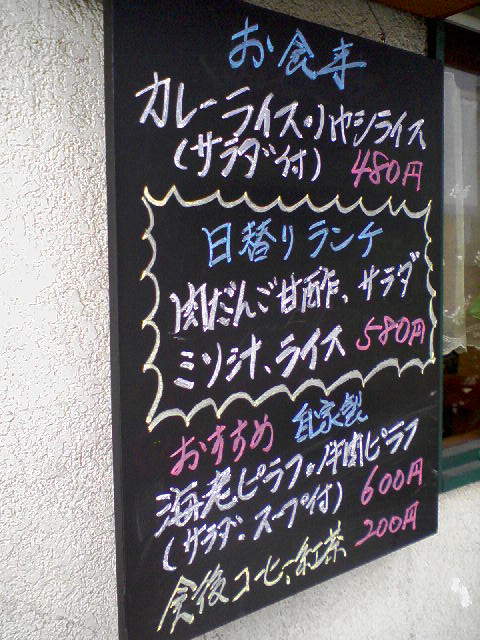 お食事
カレーライス・ハヤシライス
(サラダ付) 480円
日替りランチ
肉だんご甘酢、サラダ
ミソ汁、ライス 580円
おすすめ 自家製
海老ピラフ・牛肉ピラフ
(サラダ・スープ付) 600円
食後コーヒー、紅茶 200円